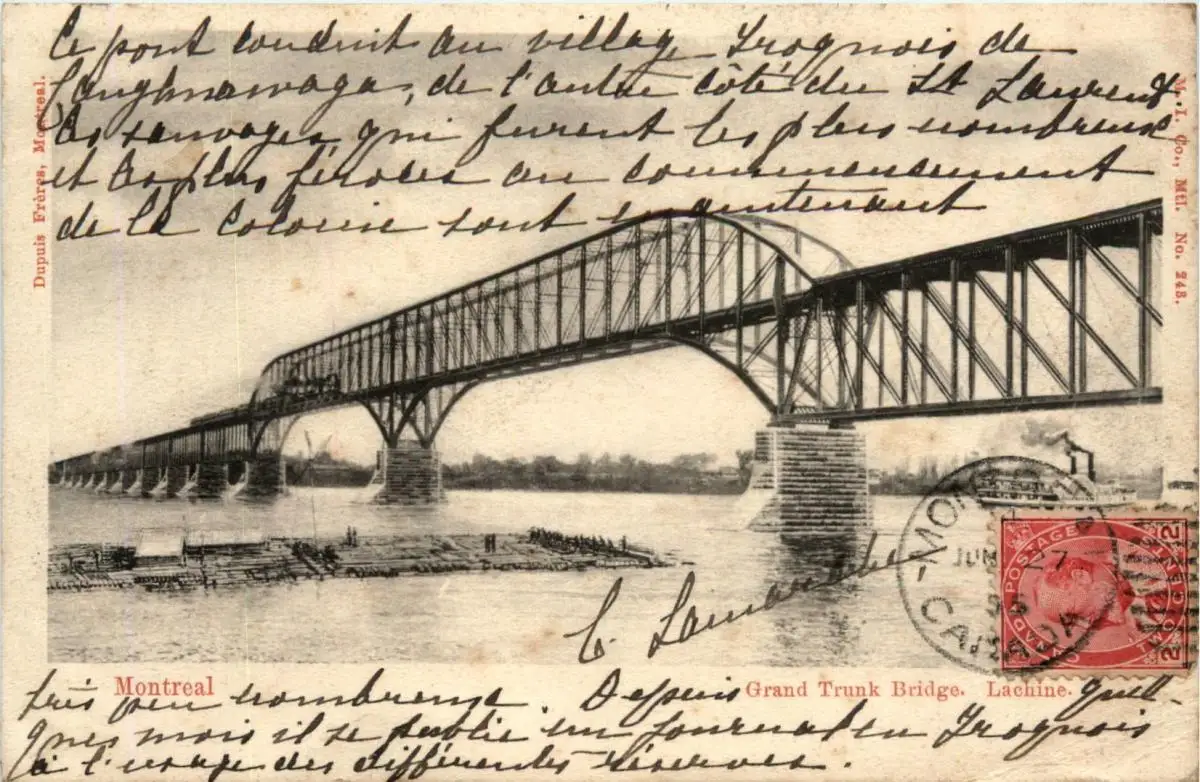 Ce pont conduit au village Iroquois de
Caughnawaga, de l'autre côté du St Laurent
Les sauvages qui furent les plus nombreux
et les plus féroces au commencement
de la colonie sont maintenant
Dupuis Frères, Montreal.
M. I. Co., Mtl. No. 248.
MONTREAL
JUN 27
CANADA
CANADA POSTAGE
TWO CENTS
2 2
Lamarche
Montreal
Grand Trunk Bridge. Lachine.
très peu nombreux. Depuis quel-
ques mois il se publie un journal en Iroquois
à l'usage des différentes réserves.